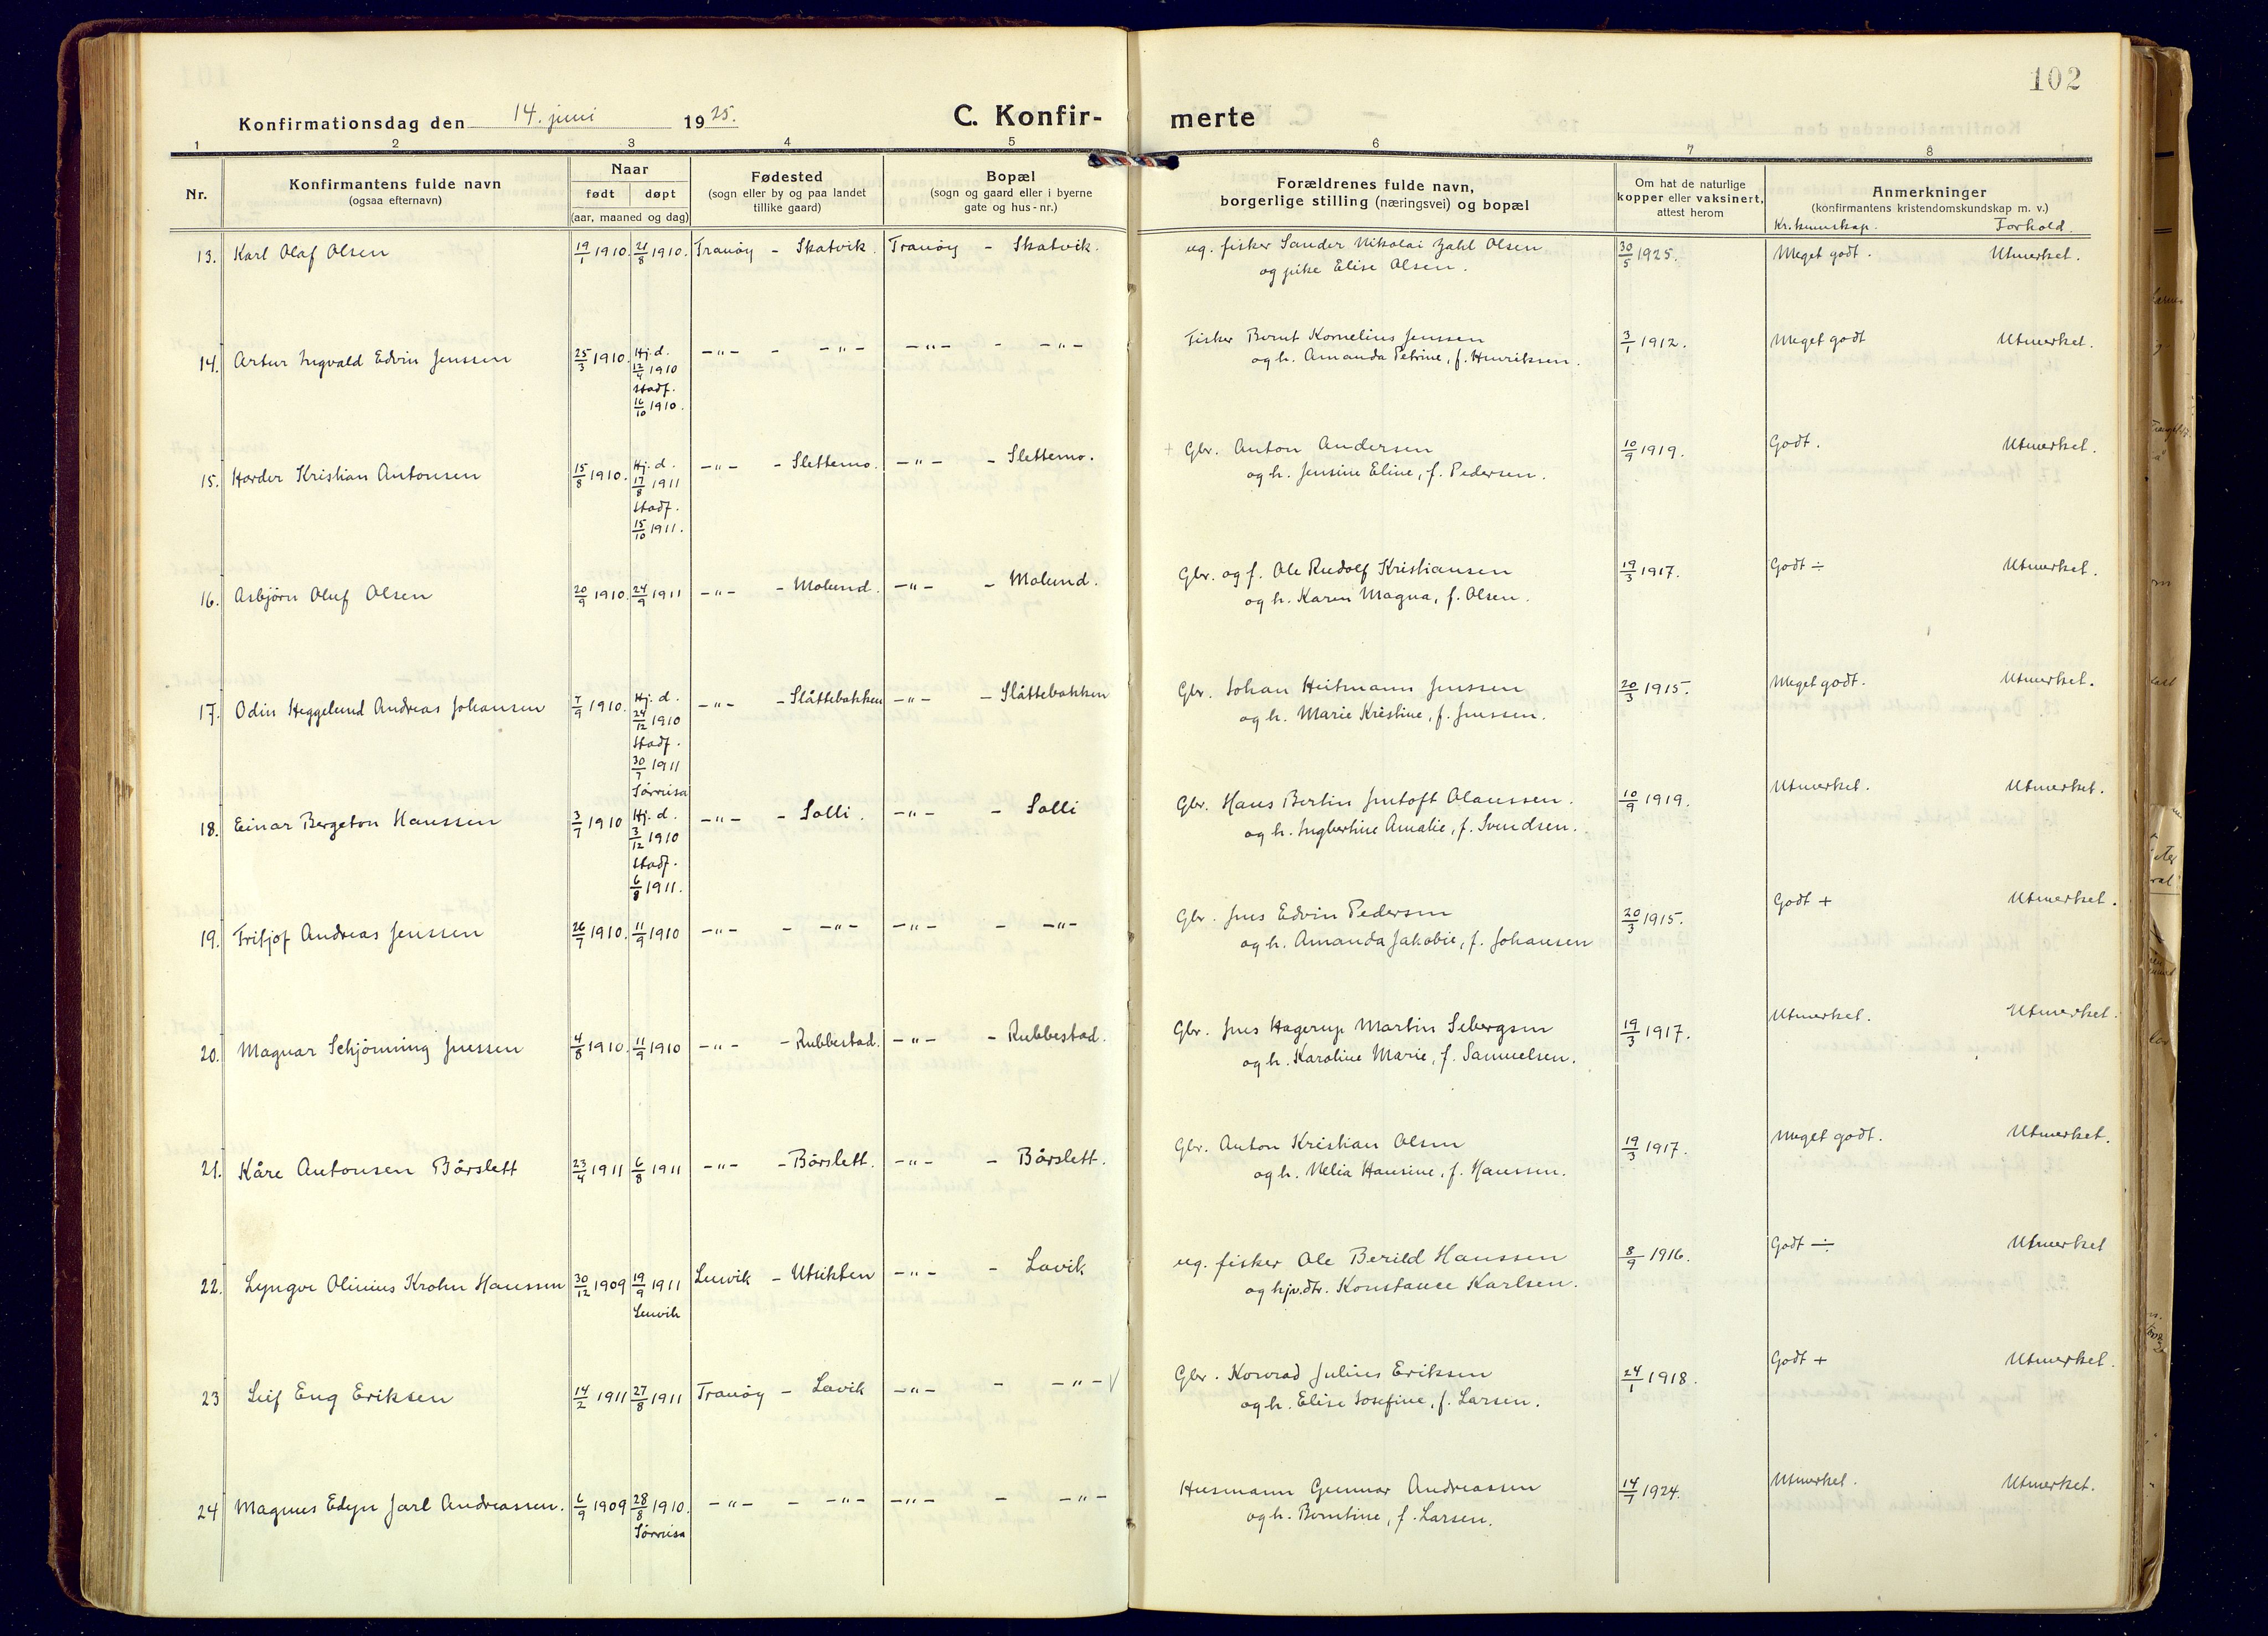 102
Konfirmationsdag den 14. juni 1925.
C. Konfir-
merte
1 2 3 4 5 6 7 8
Nr.
Konfirmantens fulde navn
(ogsaa efternavn)
Naar
født døpt
(aar, maaned og dag)
Fødested
(sogn eller by og paa landet
tillike gaard)
Bopæl
(sogn og gaard eller i byerne
gate og hus-nr.)
Forældrenes fulde navn,
borgerlige stilling (næringsvei) og bopæl
Om hat de naturlige
kopper eller vaksinert,
attest herom
Anmerkninger
(konfirmantens kristendomskundskap m. v.)
Kr.kunnskap. Forhold.
13. Karl Olaf Olsen 19/1 1910. 21/8 1910. Tranøy - Skatvik. Tranøy - Skatvik. ug. fisker Sander Nikolai Zahl Olsen 30/5 1925. Meget godt. Utmerket.
og pike Elise Olsen.
14. Artur Ingvald Edvin Jenssen 25/3 1910. Hj.d. -"- - -"- -"- - -"- Fisker Bernt Kornelius Jenssen 3/1 1912. Meget godt Utmerket.
12/4 1910 og h. Amanda Petrine, f. Henriksen.
stadf.
16/10 1910.
15. Harder Kristian Antonsen 15/8 1910. Hj.d. -"- - Slettemo. -"- - Slettemo. + Gbr. Anton Andersen 10/9 1919. Godt. Utmerket.
17/8 1911 og h. Jensine Eline, f. Pedersen.
stadf.
15/10 1911.
16. Asbjørn Oluf Olsen 20/9 1910. 24/9 1911 -"- - Molund. -"- - Molund. Gbr. og f. Ole Rudolf Kristiansen 19/3 1917. Godt ÷ Utmerket.
og h. Karen Magna, f. Olsen.
17. Odin Heggelund Andreas Johansen 7/9 1910. Hj.d. -"- - Slåttebakken -"- - Slåttebakken Gbr. Johan Heitmann Jenssen 20/3 1915. Meget godt. Utmerket.
24/12 1910 og h. Marie Kristine, f. Jenssen.
stadf.
30/7 1911
Sørreisa
18. Einar Bergeton Hanssen 3/7 1910 Hj.d. -"- - Solli. -"- - Solli Gbr. Hans Bertin Jentoft Olaussen. 10/9 1919. Utmerket. Utmerket.
3/12 1910 og h. Ingbertine Amalie, f. Svendsen.
stadf.
6/8 1911.
19. Fritjof Andreas Jenssen 26/7 1910. 11/9 1910 -"- - -"- -"- - -"- Gbr. Jens Edvin Pedersen 20/3 1915. Godt + Utmerket.
og h. Amanda Jakobie, f. Johansen
20. Magnar Schjønning Jenssen 4/8 1910. 11/9 1910 -"- - Rubbestad. -"- - Rubbestad. Gbr. Jens Hagerup Martin Sebergsen 19/3 1917. Utmerket. Utmerket.
og h. Karoline Marie, f. Samuelsen.
21. Kåre Antonsen Børslett 23/4 1911 6/8 1911 -"- - Børslett. -"- - Børslett. Gbr. Anton Kristian Olsen 19/3 1917. Meget godt. Utmerket.
og h. Nelia Hansine, f. Hanssen.
22. Lyngve Olinius Krohn Hanssen 30/12 1909 19/9 1911 Lenvik - Utsikten -"- - Lavik ug. fisker Ole Berild Hanssen 8/9 1916. Godt ÷ Utmerket
Lenvik og hjv.dtr. Konstance Karlsen.
23 Leif Eng Eriksen 14/2 1911 27/8 1911 Tranøy - Lavik -"- - -"- √ Gbr. Konrad Julius Eriksen 24/1 1918. Godt + Utmerket.
og h. Elise Josefine, f. Larsen.
24 Magnus Edyn Jarl Andreassen. 6/9 1909 28/8 1910. -"- - -"- -"- - -"- Husmann Gunnar Andreassen 14/7 1924. Utmerket. Utmerket.
Sørreisa og h. Berntine, f. Larsen.